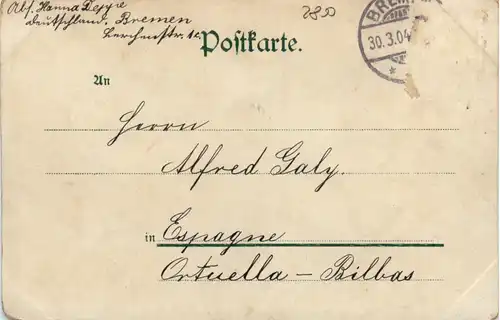 Abs. Hanna Deppe
Deutschland. Bremen
Lerchenstr. 12.
2850
BREMEN
30.3.04
Postkarte.
An
Herrn
Alfred Galy.
in Espagne
Ortuella - Bilbao